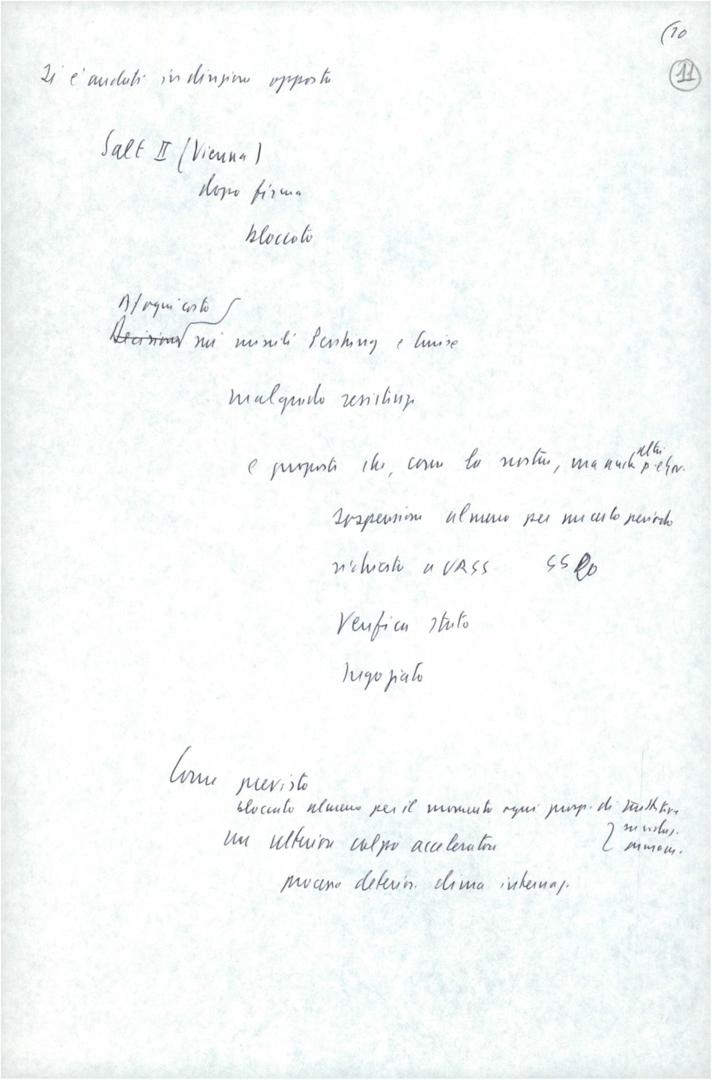 (10
11
Si è andati in direzione opposta
Salt II (Vienna)
dopo firma
bloccato
A/ogni costo
Decisione sui missili Pershing e Cruise
malgrado resistenz
e proposte che, come la nostra, ma anche altri
sospensione almeno per un certo periodo
richiesta a URSS SS 20
Verifica stato
negoziato
Come previsto
bloccato almeno per il momento ogni prosp. di
un ulteriore colpo acceleratore
processo deterior. clima internaz.